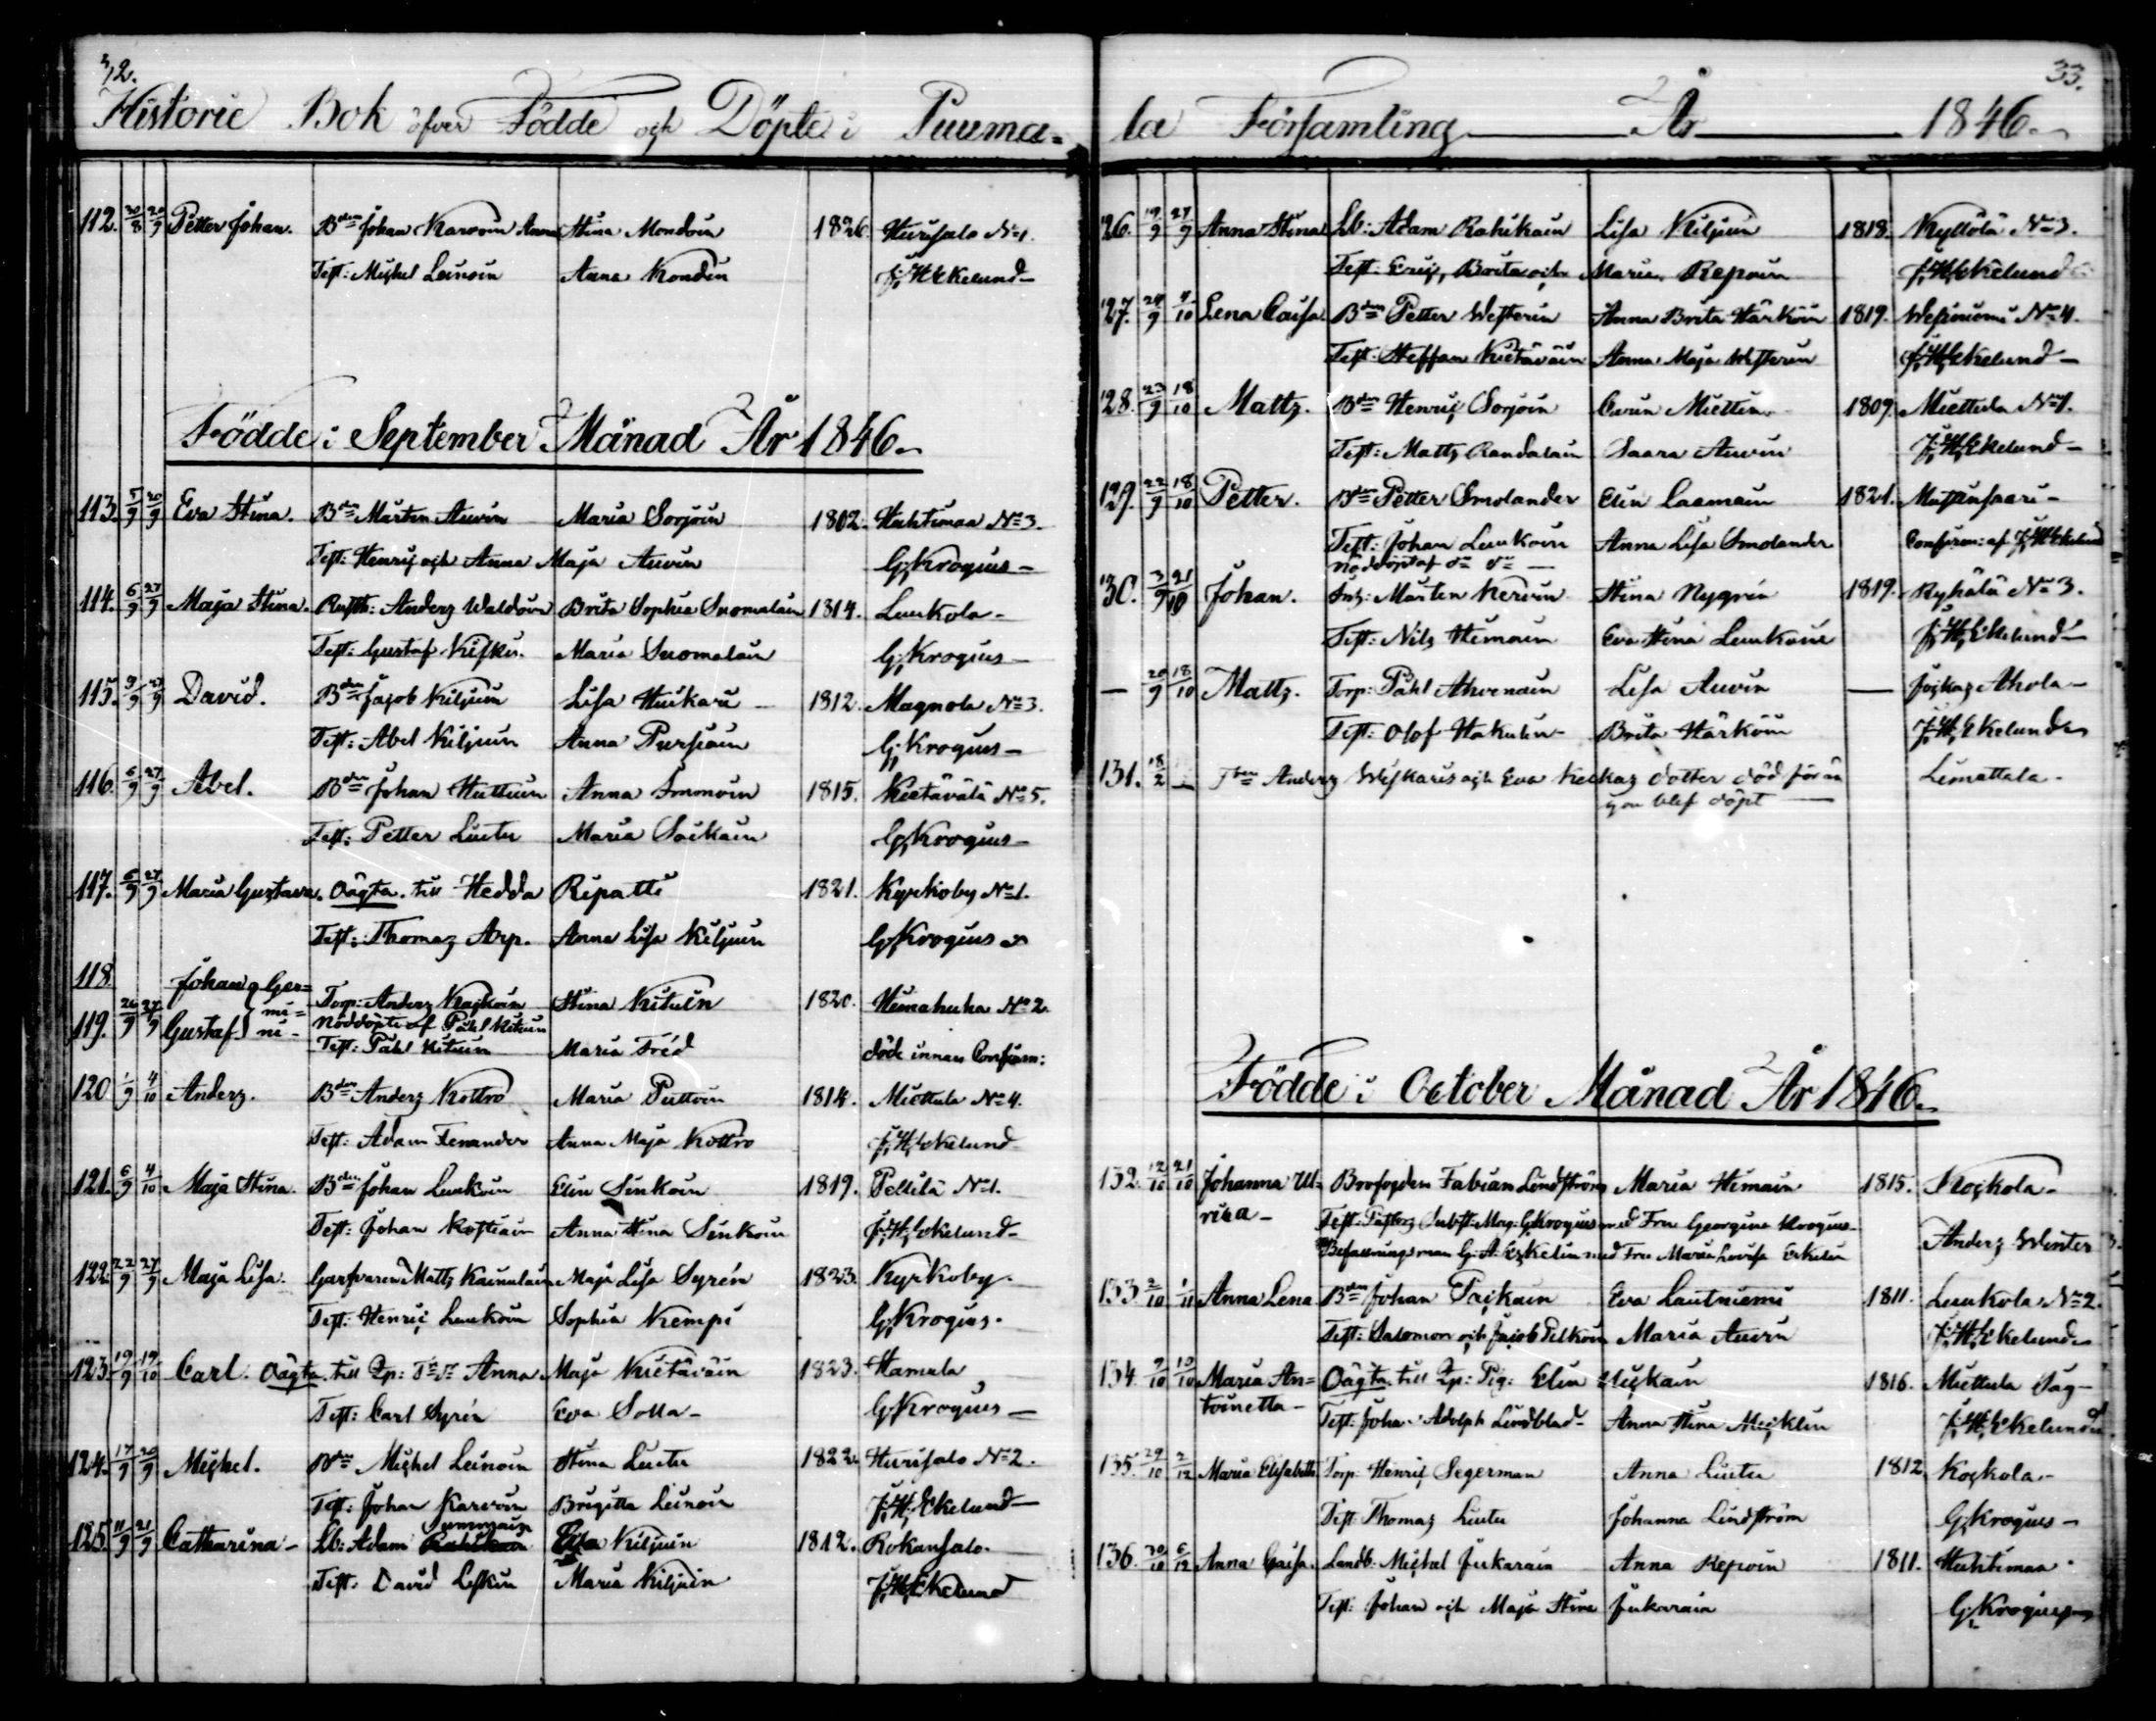 32.
Historie Bok öfver Födde och Döpte i Puuma=
112. 30/8 20/9 Petter Johan. Bden Johan Karvoin Anna Stina Mondoin 1826 Hurisalo No 1.
Test: Michel Leinoin Anna Kondin J.H. Ekelund
Födde i September Månad År 1846.
113. 5/9 20/9 Eva Stina. Bden Mårten Auvin Maria Sorjoin 1802. Hahtimaa No 3.
Test: Henric och Anna Maja Auvin G. Krogius
114. 6/9 27/9 Maja Stina. Anderz Waldoin Brita Sophia Suomalain 1814. Luukola
Test: Gustaf Maria Suomalain G. Krogius
115. 9/9 27/9 David. Bden Jacob Kiljuin Lisa Huikari 1812. Magnola No 3.
Test: Abel Kiljuin Anna Pursiain G. Krogius
116. 6/9 27/9 Abel. Bden Johan Huttuin Anna Immoin 1815. Kietävälä No 5.
Test: Petter Liutu Maria Soikain G. Krogius
117. 6/9 27/9 Maria Gustava. Oägta till Hedda Ripatti 1821. Kyrkoby No 1.
Test: Thomaz Arp. Anna Lisa Kiljuin G. Krogius
118. Johan Ge=
119. 26/9 27/9 Gustaf mi=ni Torp: Anderz Kaskoin Stina Kituin 1820. Heinahuha No 2.
Nöddöpte af Påhl Kituin
Test: Påhl Kituin Maria Fréd döde innan Confirm:
120 1/9 4/10 Anderz. Bden Anderz Kottro Maria Puttoin 1814. Miettula No 4.
Test: Adam Fenander Anna Maja Kottro J.H. Ekelund
121. 6/9 4/10 Maja Stina. Bden Johan Luukoin Elin Sinkoin 1819. Pellilä No 1.
Test: Johan Kostiain Anna Stina Sinkoin J.H. Ekelund
122. 22/9 27/9 Maja Lisa. Garfvaren Mattz Kainulain Maja Lisa Syrén 1823. Kyrkoby.
Test: Henric Luukoin Sophia Kempi G. Krogius.
123. 19/9 19/10 Carl. Oägta till Anna Maja Kietäväin 1823. Hamula
Test: Carl Syrén Eva Solla G. Krogius
124. 17/9 20/9 Michel. Bden Michel Leinoin Stina Liutu 1822. Hurisalo No 2.
Test: Johan Karvoin Brigitta Leinoin J.H. Ekelund
125. 11/9 21/9 Catharina Lb: Adam Kiljuin 1812. Rokansalo.
Test: David Leskin Maria Kiljuin J.H. Ekelund
33.
la Församling År 1846.
126. 19/9 27/9 Anna Stina Lb: Adam Rahikain Lisa Kiljuin 1818. Kyllölä No 3.
Test: Eric, Brita och Maria Repoin J.H. Ekelund
127. 24/9 4/10 Lena Caisa Bden Petter Westerin Anna Brita Härköin 1819. Wesiniemi No 4.
Test: Steffan Kietäväin Anna Maja Westerin J.H. Ekelund
128. 23/9 18/10 Mattz. Bden Henric Sorjoin Carin Miettin 1809. Miettula No 1.
Test: Mattz Randalain Saara Auvin J.H. Ekelund
129. 22/9 18/10 Petter. Bden Petter Smolander Elin Laamain 1821.
Test: Johan Luukoin Anna Lisa Smolander Confirm: af J.H. Ekelund
nöddöpt af dn dn
130. 3/9 21/10 Johan. Inh: Mårten Kervin Stina Nygrén 1819. Ryhälä No 3.
Test: Nils Himain Eva Stina Luukoin J.H. Ekelund
— 20/9 18/10 Mattz. Torp: Påhl Ahvenain Lisa Auvin — Jockas Ahola
Test: Olof Hakulin Brita Härköin J.H. Ekelund
131. 18/2 — Anderz Weskaris och Eva dotter död förän Liimattala.
hon blef döpt
Födde i October Månad År 1846.
132. 12/10 21/10 Johanna Ul= Brofogden Fabian Lindström Maria Himain 1815. Kockola
rica Test: Pastorz Subst: Mag: G. Krogius med Fru Georgina Krogius
Befallningsman G. A. med Fru Maria Lovisa Anderz Winter
133. 2/10 1/11 Anna Lena Bden Johan Paikain Eva Lautniemi 1811. Luukola No 2.
Test: Salomon och Jacob Pelkoin Maria Auvin J.H. Ekelund
134. 9/10 10/10 Maria An= Oägta till Pig: Elin 1816. Miettula Såg
toinetta Test: Johan Adolph Lindblad Anna Stina J.H. Ekelund
135. 29/10 2/12 Maria Elisabeth Torp: Henric Segerman Anna Liutu 1812 Kockola
Test: Thomas Liutu Johanna Lindström G. Krogius
136. 30/10 6/12 Anna Caisa. Landb. Michel Jukarain Anna Repoin 1811. Hahtimaa
Test: Johan och Maja Stina Jukarain G. Krogius